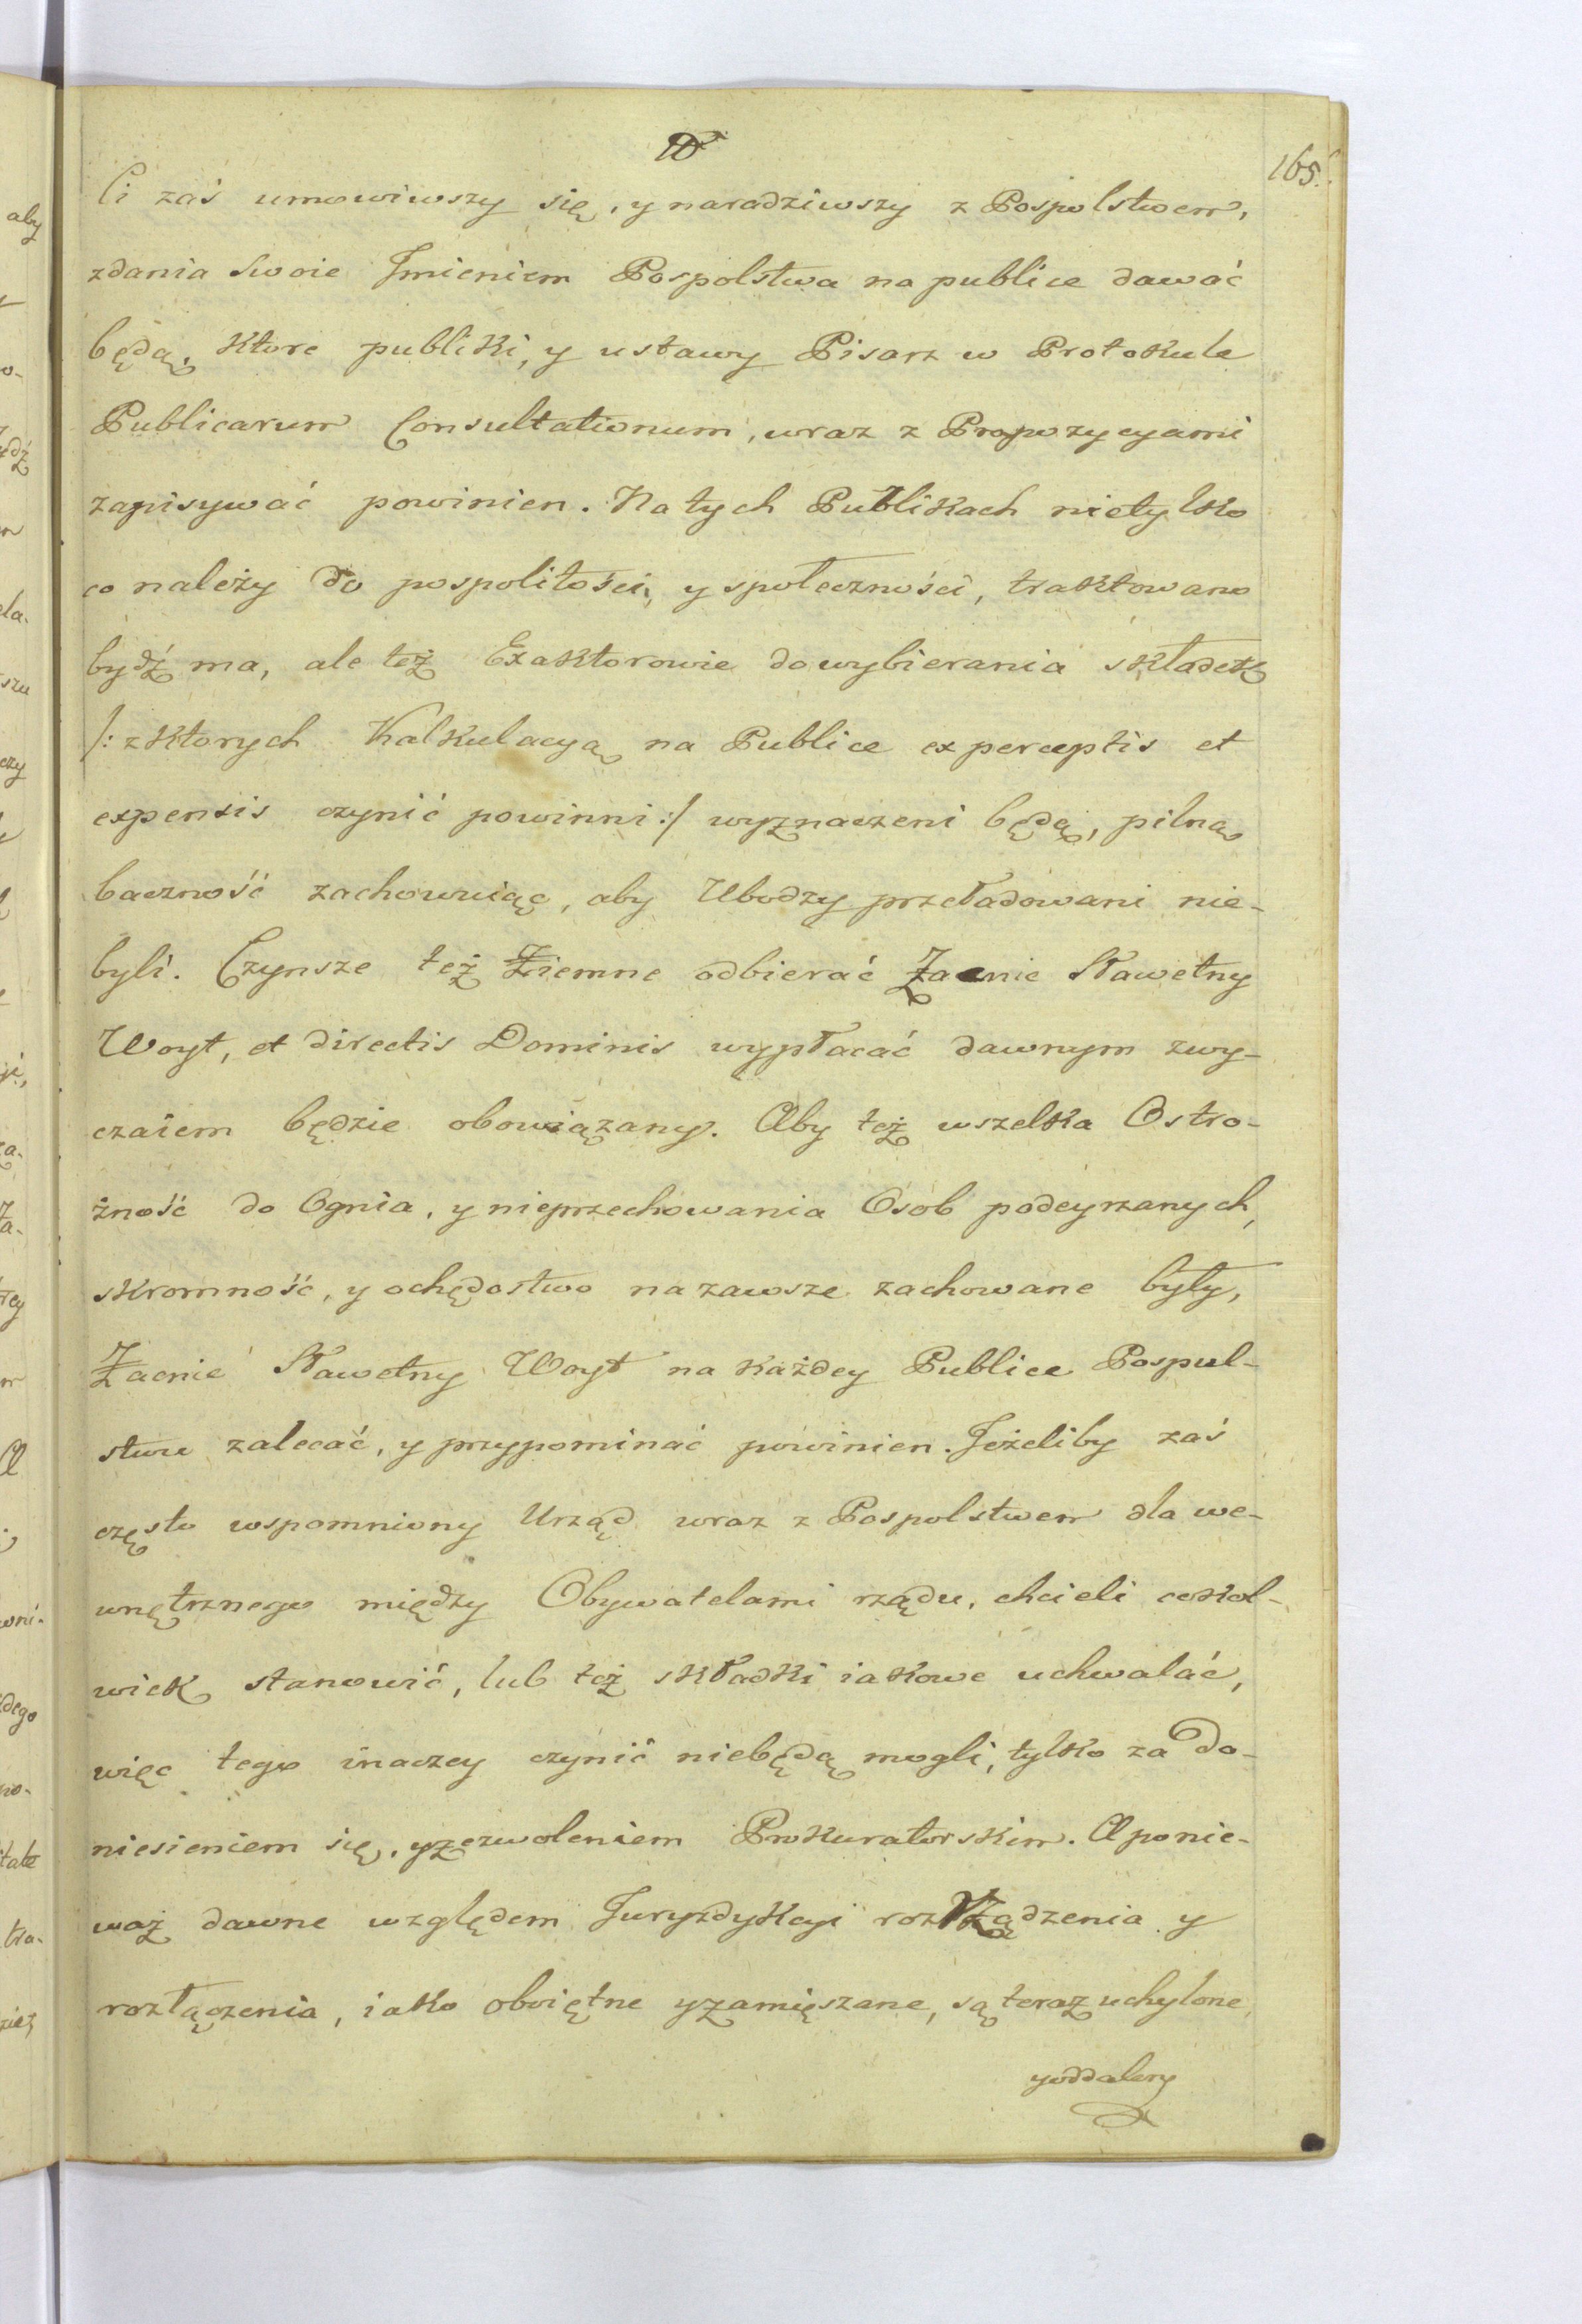 165.
Ci zaś umowiwszy się, y naradziwszy z Pospolstwem,
zdania swoie Imieniem Pospolstwa na publice dawać
będą, ktore publiki, y ustawy Pisarz w Protokule
Publicarum Consultationum, wraz z Propozycyami
zapisywać powinien. Na tych Publikach nietylko
co należy do pospolitości, y społeczności, traktowano
bydź ma, ale też Exaktorowie do wybierania składek
/: z ktorych Kalkulacyą na Publice ex perceptis et
expensis czynić powinni :/ wyznaczeni będą, pilną
baczność zachowuiąc, aby Ubodzy przeładowani nie-
byli. Czynsze też Ziemne odbierać Zacnie Sławetny
Woyt, et directis Dominis wypłacać dawnym zwy-
czaiem będzie obowiązany. Aby też wszelka Ostro-
żność do Ognia, y nieprzechowania Osob podeyrzanych,
skromność, y ochędostwo na zawsze zachowane były,
Zacnie Sławetny Woyt na każdey Publice Pospol-
stwu zalecać, y przypominać powinien. Jeżeliby zaś
często wspomniony Urząd wraz z Pospolstwem dla we-
wnętrznego między Obywatelami rządu, chcieli cokol-
wiek stanowić, lub też składki iakowe uchwalać,
więc tego inaczey czynić niebędą mogli, tylko za do-
niesieniem się, y zezwoleniem Prokuratorskim. A ponie-
waż dawne względem Juryzdykcyi rozrządzenia y
rozłączenia, iako oboiętne y zamięszane, są teraz uchylone,
y oddalony
aby